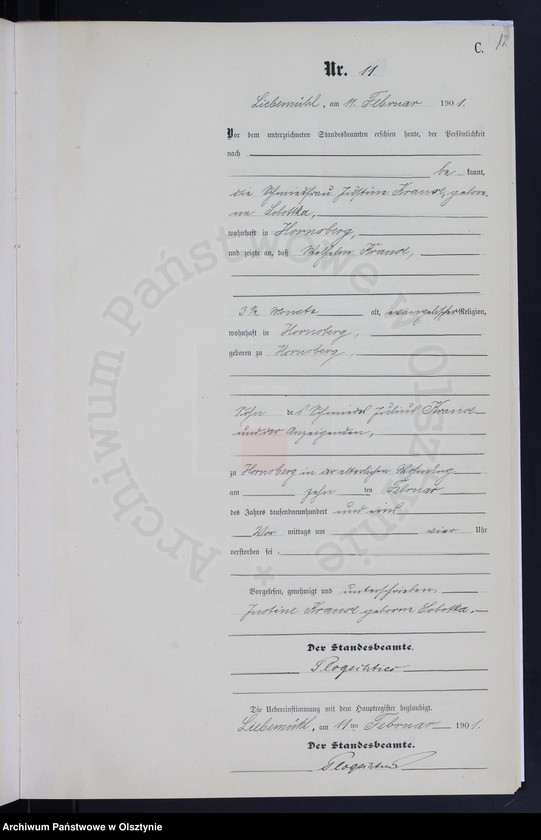 C. 12
Nr. 11
Liebemühl, am 11. Februar 1901.
Vor dem unterzeichneten Standesbeamten erschien heute, der Persönlichkeit
nach
be kannt,
die Schmiedfrau Justine Krause, gebore-
ne Sobottka,
wohnhaft in Hornsberg,
und zeigte an, daß Wilhelm Krause,
3 ½ Monate alt, evangelischer Religion,
wohnhaft in Hornsberg,
geboren zu Hornsberg,
Sohn des Schmiedes Julius Krause
und der Anzeigenden,
zu Hornsberg in der elterlichen Wohnung
am zehn ten Februar
des Jahres tausendneunhundert und eins
Vor mittags um vier Uhr
verstorben sei.
Vorgelesen, genehmigt und unterschrieben.
Justine Krause geborne Sobottka.
Der Standesbeamte.
Die Uebereinstimmung mit dem Hauptregister beglaubigt.
Liebemühl, am 11ten Februar 1901.
Der Standesbeamte.
Archiwum Państwowe w Olsztynie *
Archiwum Państwowe w Olsztynie